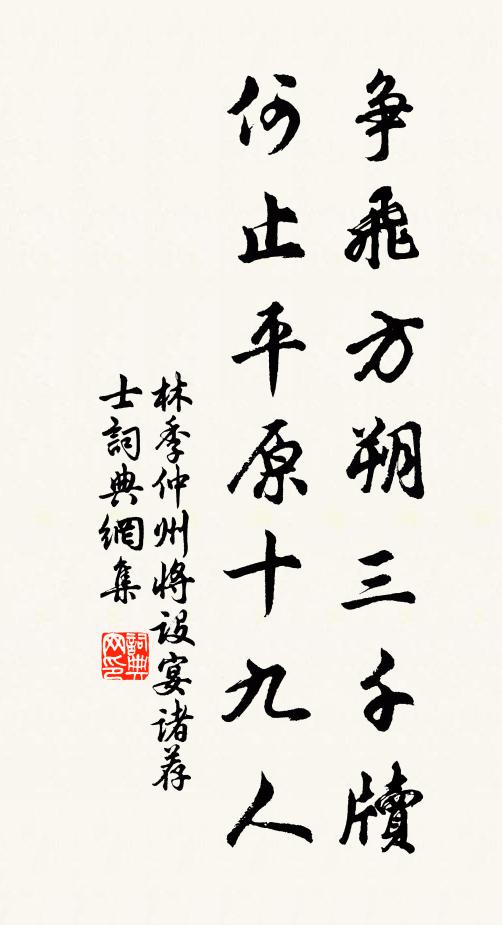 争飛方朔三千牘
何止平原十九人
林季仲州將設宴諸荐
士詞典網集
詞典
网印